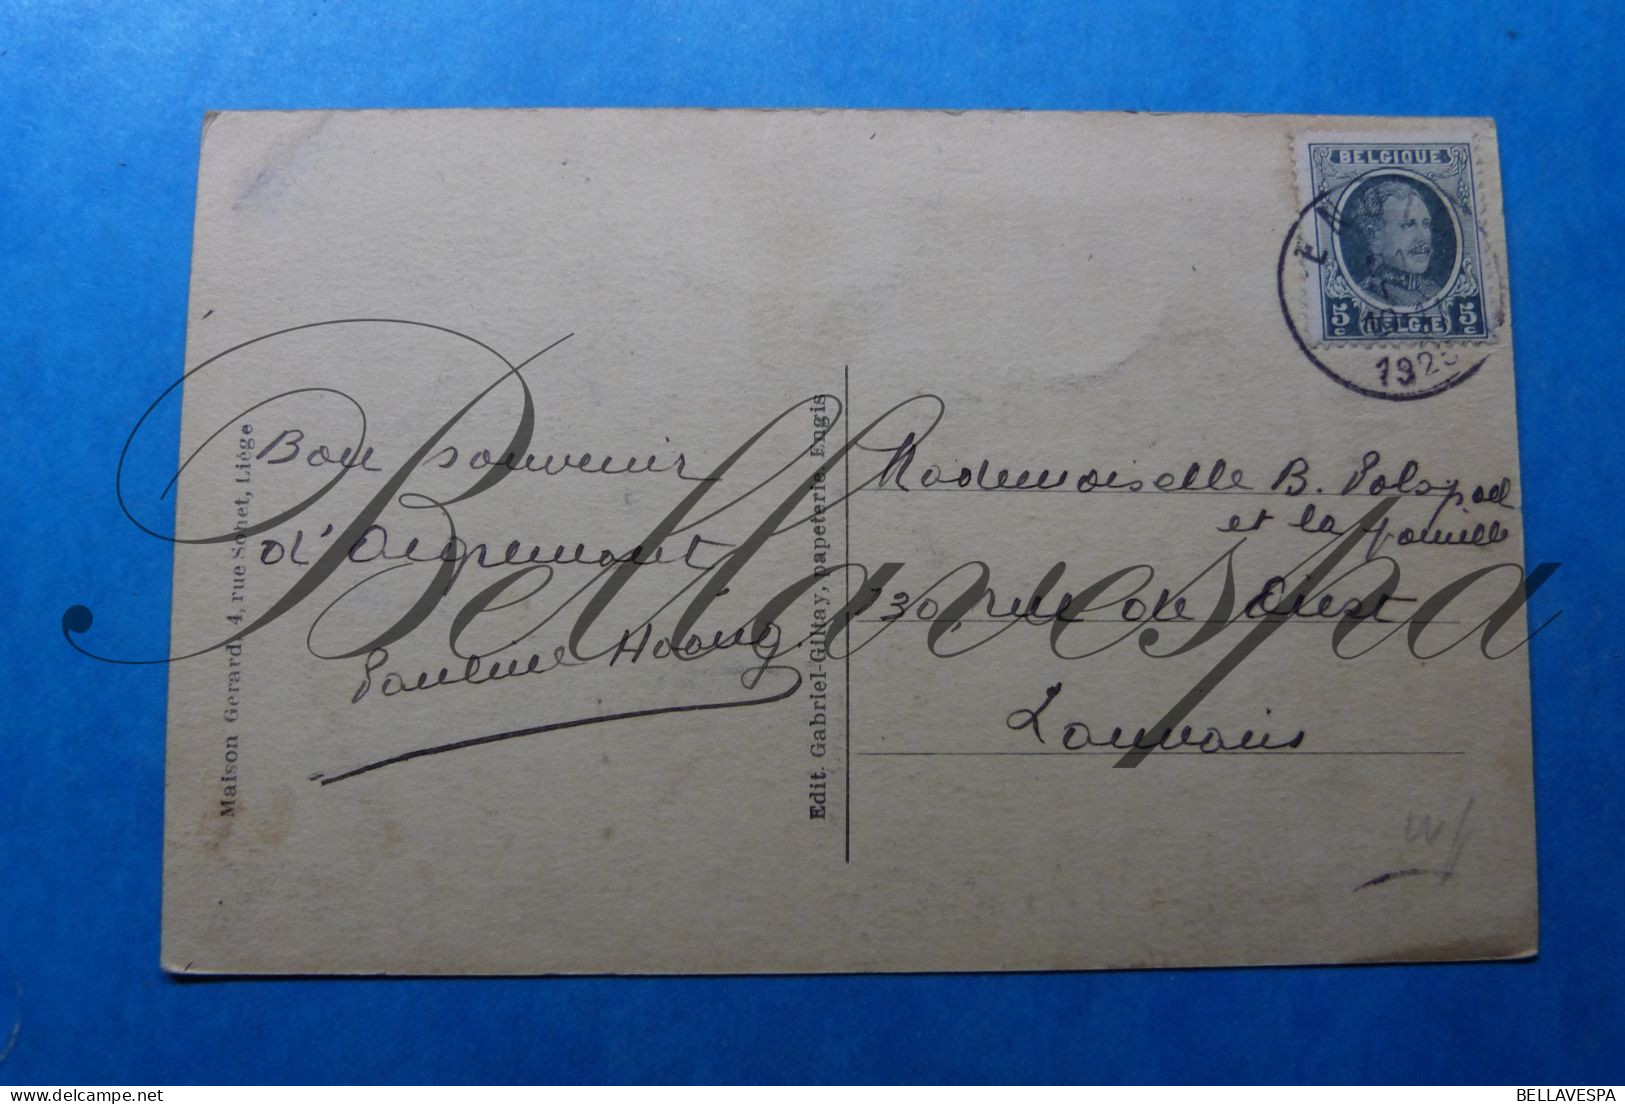 BELGIQUE
5c BELGIË 5c
EN
1923
Maison Gerard, 4, rue Sohet, Liége
Bon souvenir
d'Aigremont
Pauline
Edit. Gabriel-Gilltay, papeterie, Engis
Mademoiselle B.
et la famille
30, rue de Diest
Louvain
Bellavespa
BELLAVESPA